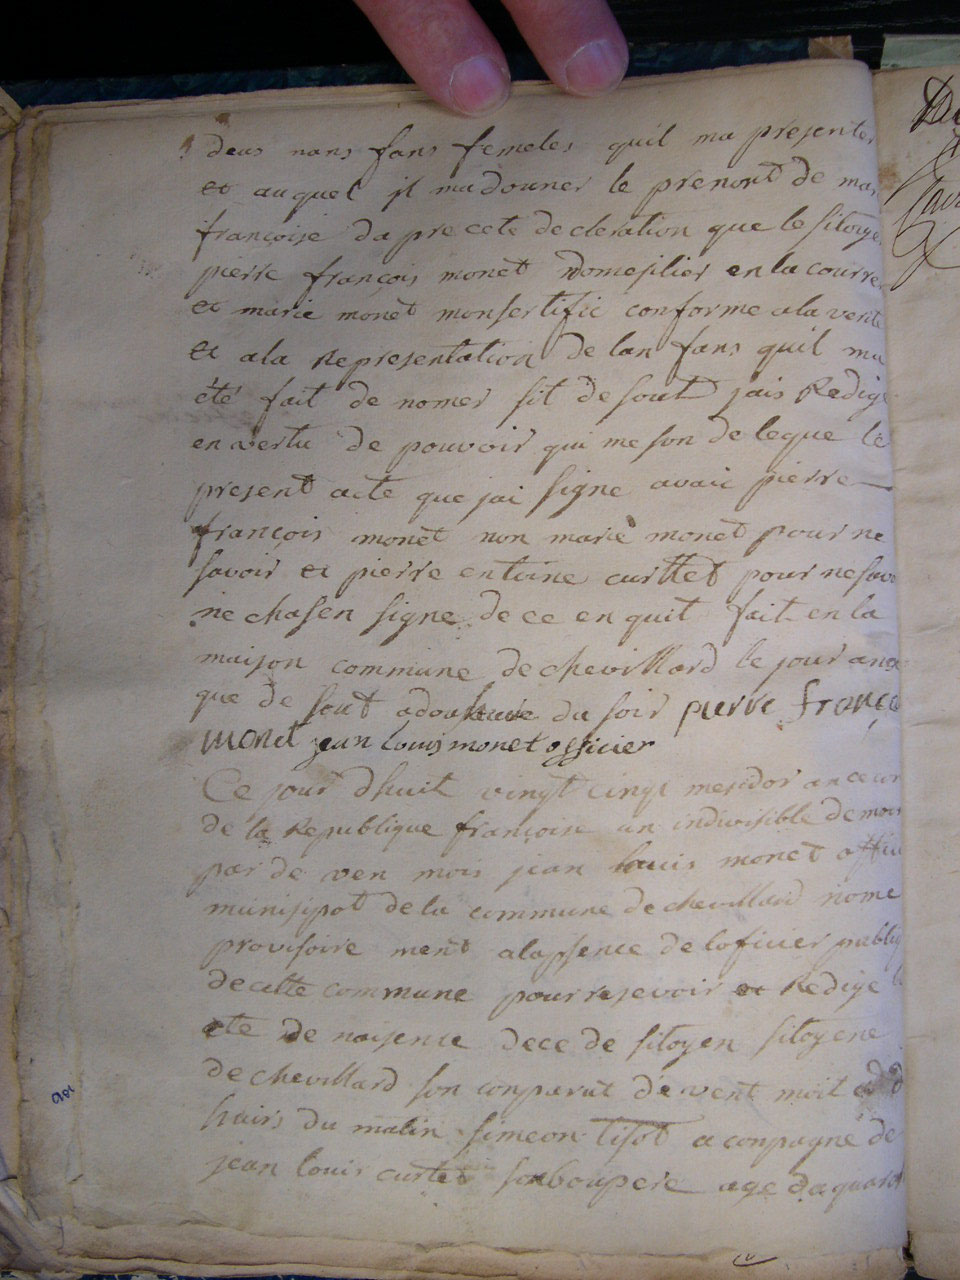 deus nans fans femeles quil ma presenter
et auquel il ma douner le prenont de mar
francoise da pre cete decleration que le sitoye
pierre françois monet domesilier en la courre
et marie monet monsertific conforme a la verite
et a la Representation de lan fans quil ma
été fait de nomer sit desout jais Redige
en vertu de pouvoir qui me son deleque le
present acte que jai signe avaic pierre
françois monet non marie monet pour ne
savoir et pierre entoine curttet pour ne savo
ne chasen signe de ce en quit fait en la
maison commune de chevillard le jour an
que de sout a du soir pierre franco
monet jean louis monet officier
Ce jour dhuit vingt cinq mesidor an
de la Republique francoise un indivisible demon
par de ven mois jean louis monet offici
munisipot de la commune de chevillard nome
provisoire ment alapsence de loficier publiq
de cette commune pour resevoir et Redige l
ate de naisence dece de sitoyen sitoyene
de chevillard son conparut devent moit
hairs du matin simeon tisot a conpagne de
jean louis curtet sonboupere age daquarat